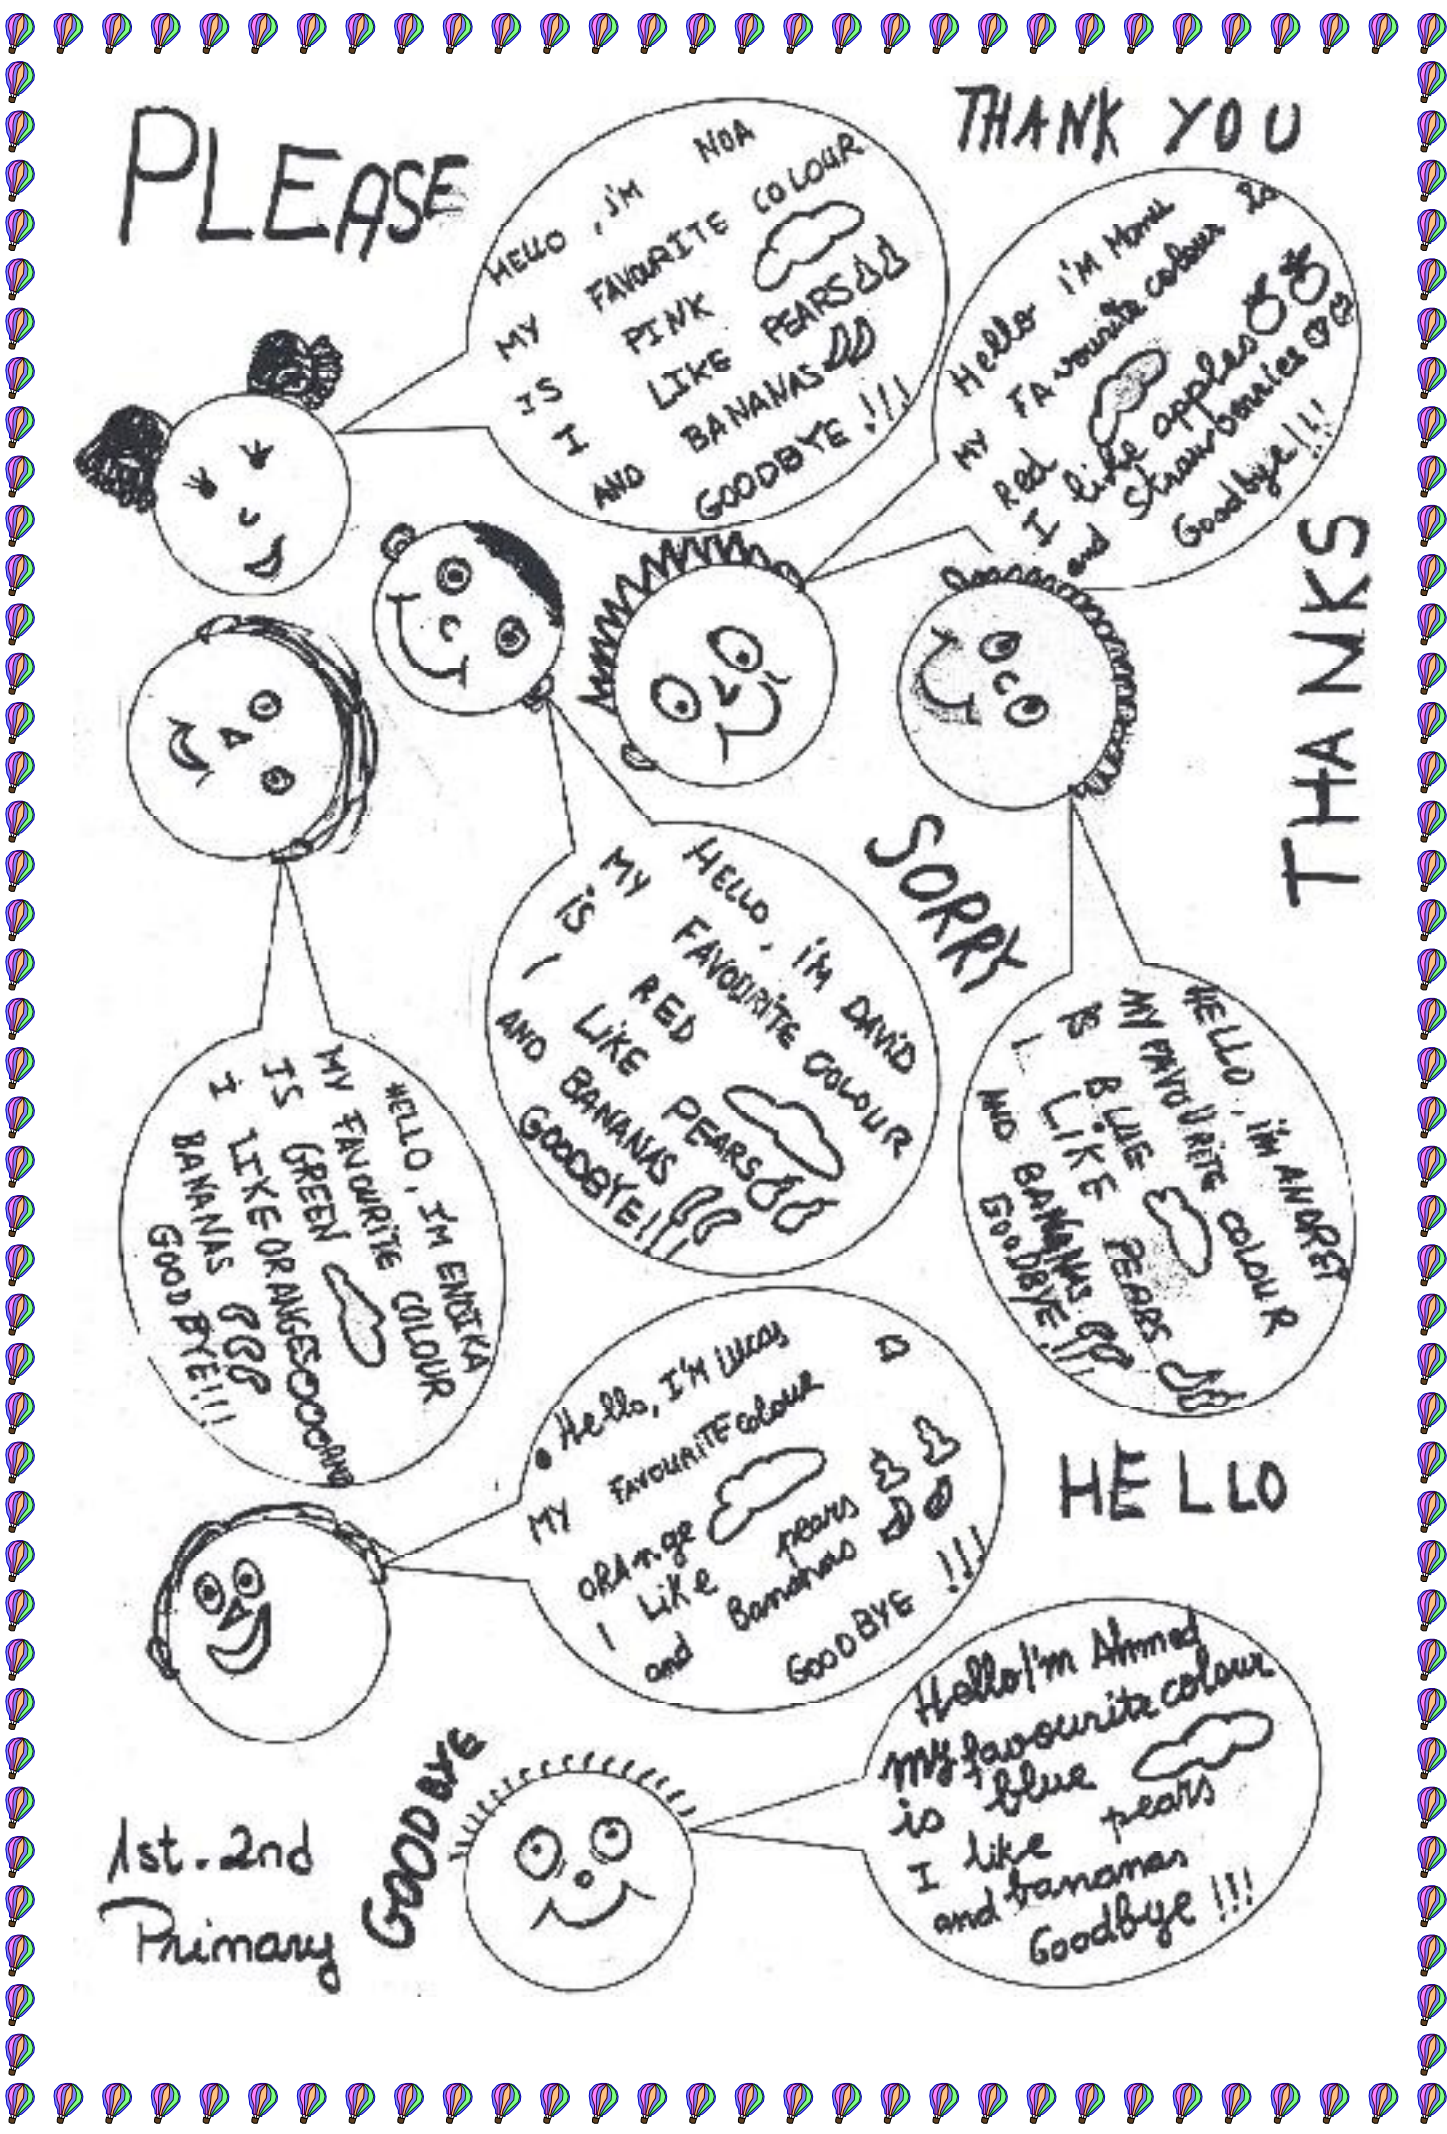 PLEASE
THANK YOU
HELLO, I'M NOA
MY FAVOURITE COLOUR
IS PINK
I LIKE PEARS
AND BANANAS
GOODBYE!!!
Hello I'M
MY FAvourite colour is
Red
I like apples
and Strawberries
Goodbye!!!
THANKS
SORRY
HELLO, I'M DAVID
MY FAVOURITE COLOUR
IS RED
I LIKE PEARS
AND BANANAS
GOODBYE!!!
HELLO, I'M ANDREI
MY FAVOURITE COLOUR
IS BLUE
I LIKE PEARS
AND BANANAS
GOODBYE!!!
HELLO, I'M ENDIKA
MY FAVOURITE COLOUR
IS GREEN
I LIKE ORANGES AND
BANANAS
GOODBYE!!!
Hello, I'M lucas
MY FAVOURITE colour
ORAnge
I LiKe pears
and Bananas
GOODBYE !!!
HELLO
Hello I'm Ahmed
my favourite colour
is blue
I like pears
and bananas
Goodbye !!!
GOODBYE
1st. 2nd
Primary